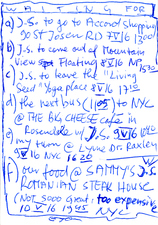 WAITING FOR
a) J.S. to go to Accord Shopping
30 ST JOSEN RD 7 V 16 1300
b) J.S. to come out of Mountain
View Floating 8 V 16 NP 1530
c) J.S. to leave the "Living
Seed" Yoga place 8 V 16 1710
d) the next bus (1105) to NYC
@ THE BIG CHEESE cafe in
Rosendale w/ J.S. 9 V 16
e) my turn @ Lynne Dr. Raxley
9 V 16 NYC 16 20
f) our food @ SAMMY'S
ROMANIAN STEAK HOUSE
(NOT SOOO great: too expensive
10 V 16 1945 NYC